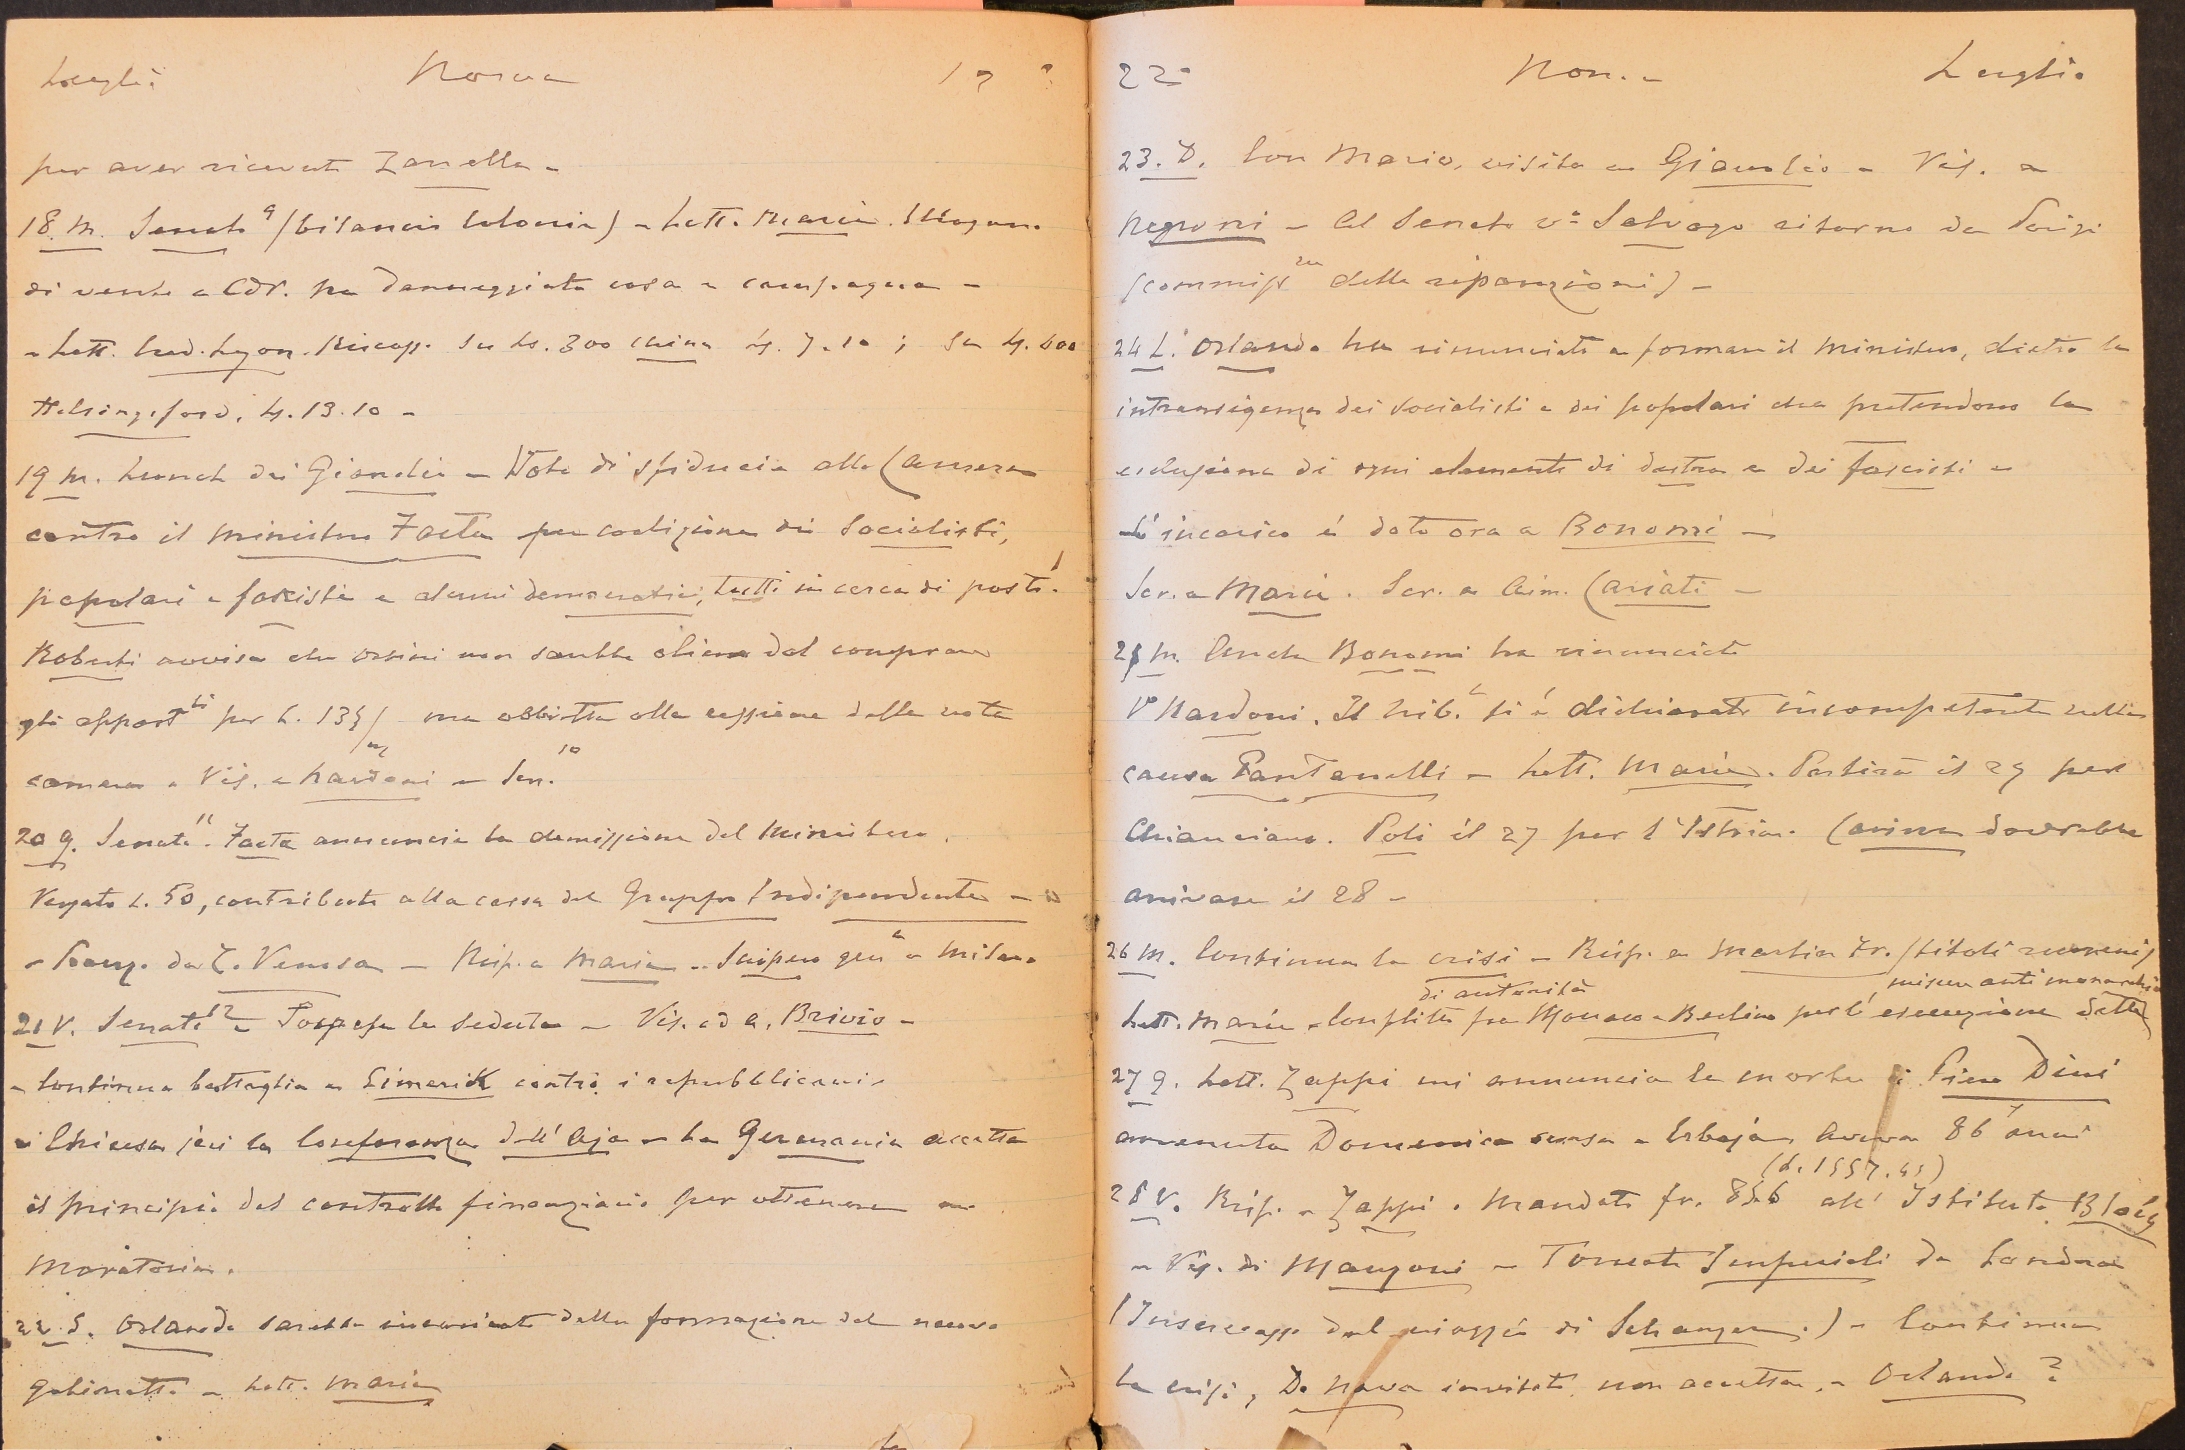 Luglio Roma 19
per aver ricevuto Zanella -
18. M. Senato 9 (bilancio Colonie) - Lett. Maria. Uragano
di vento a CdR. ha danneggiato casa e campagna -
- Lett. Cred. Lyon. Ricap. su Ls. 300 China Ls. 7.10 ; su Ls. 400
Helsingsford, Ls. 13.10 -
19 M. Lunch dai Giandia - Voto di sfiducia alla Camera
contro il ministero Facta per coalizione dei Socialisti,
popolari e fascisti e alcuni democratici, tutti in cerca di posti!
Roberti avvisa che Orsini non sarebbe alieno dal comprare
gli appart.ti per L. 135/m ma obbietta alla cessione della nota
camera - Vis. a Nardoni - Sen. 10
20 G. Senato 11. Facta annuncia la demissione del Ministero.
Versato L. 50, contributo alla cassa del Gruppo Indipendente -
- Pranz. da T. Venosa - Risp. a Maria - Sciopero gen. a Milano
21 V. Senato 12 - Sospesa la seduta - Vis. ad A. Brivio -
- Continua battaglia a Limerik contro i repubblicani -
- Chiusa jeri la Conferenza dell'Aja - La Germania accetta
il principio del controllo finanziario per ottenere una
moratoria.
22 S. Orlando sarebbe incaricato della formazione del nuovo
gabinetto - Lett. Maria
22 Roma Luglio
23. D. Con Mario, visita a - Vis. a
Negroni - Al Senato v° Salvago ritorno da Parigi
(commiss.ne delle riparazioni) -
24 L. Orlando ha rinunciato a formare il Ministero, dietro la
intransigenza dei socialisti e dei popolari che pretendono la
esclusione di ogni elemento di destra e dei fascisti -
L'incarico è dato ora a Bonomi -
Scr. a Maria. Scr. a Aim. Cariati -
25 M. Anche Bonomi ha rinunciato
V° Nardoni. Il Trib. si è dichiarato incompetente nella
causa Pantanelli - Lett. Maria. Partirà il 29 per
Chianciano. Poli il 27 per l'Istria. Carina dovrebbe
arrivare il 28 -
26 M. Continua la crisi - Risp. a Martin Fr. (titoli rumeni)
Lett. Maria - Conflitto di autorità fra Monaco e Berlino per l'esecuzione delle misure antimonarchiche
27 G. Lett. Zappi mi annuncia la morte di Piero Dini
avvenuta Domenica scorsa a Erbaja. Aveva 86 anni
28 V. Risp. a Zappi. Mandato fr. 856 (L. 1557.45) all'Istituto
- Vis. di Manzoni - Tornato Imperiali da Londra
(Insuccesso del viaggio di Schanzer.) - Continua
la crisi, De Nava invitato, non accetta, - Orlando ?